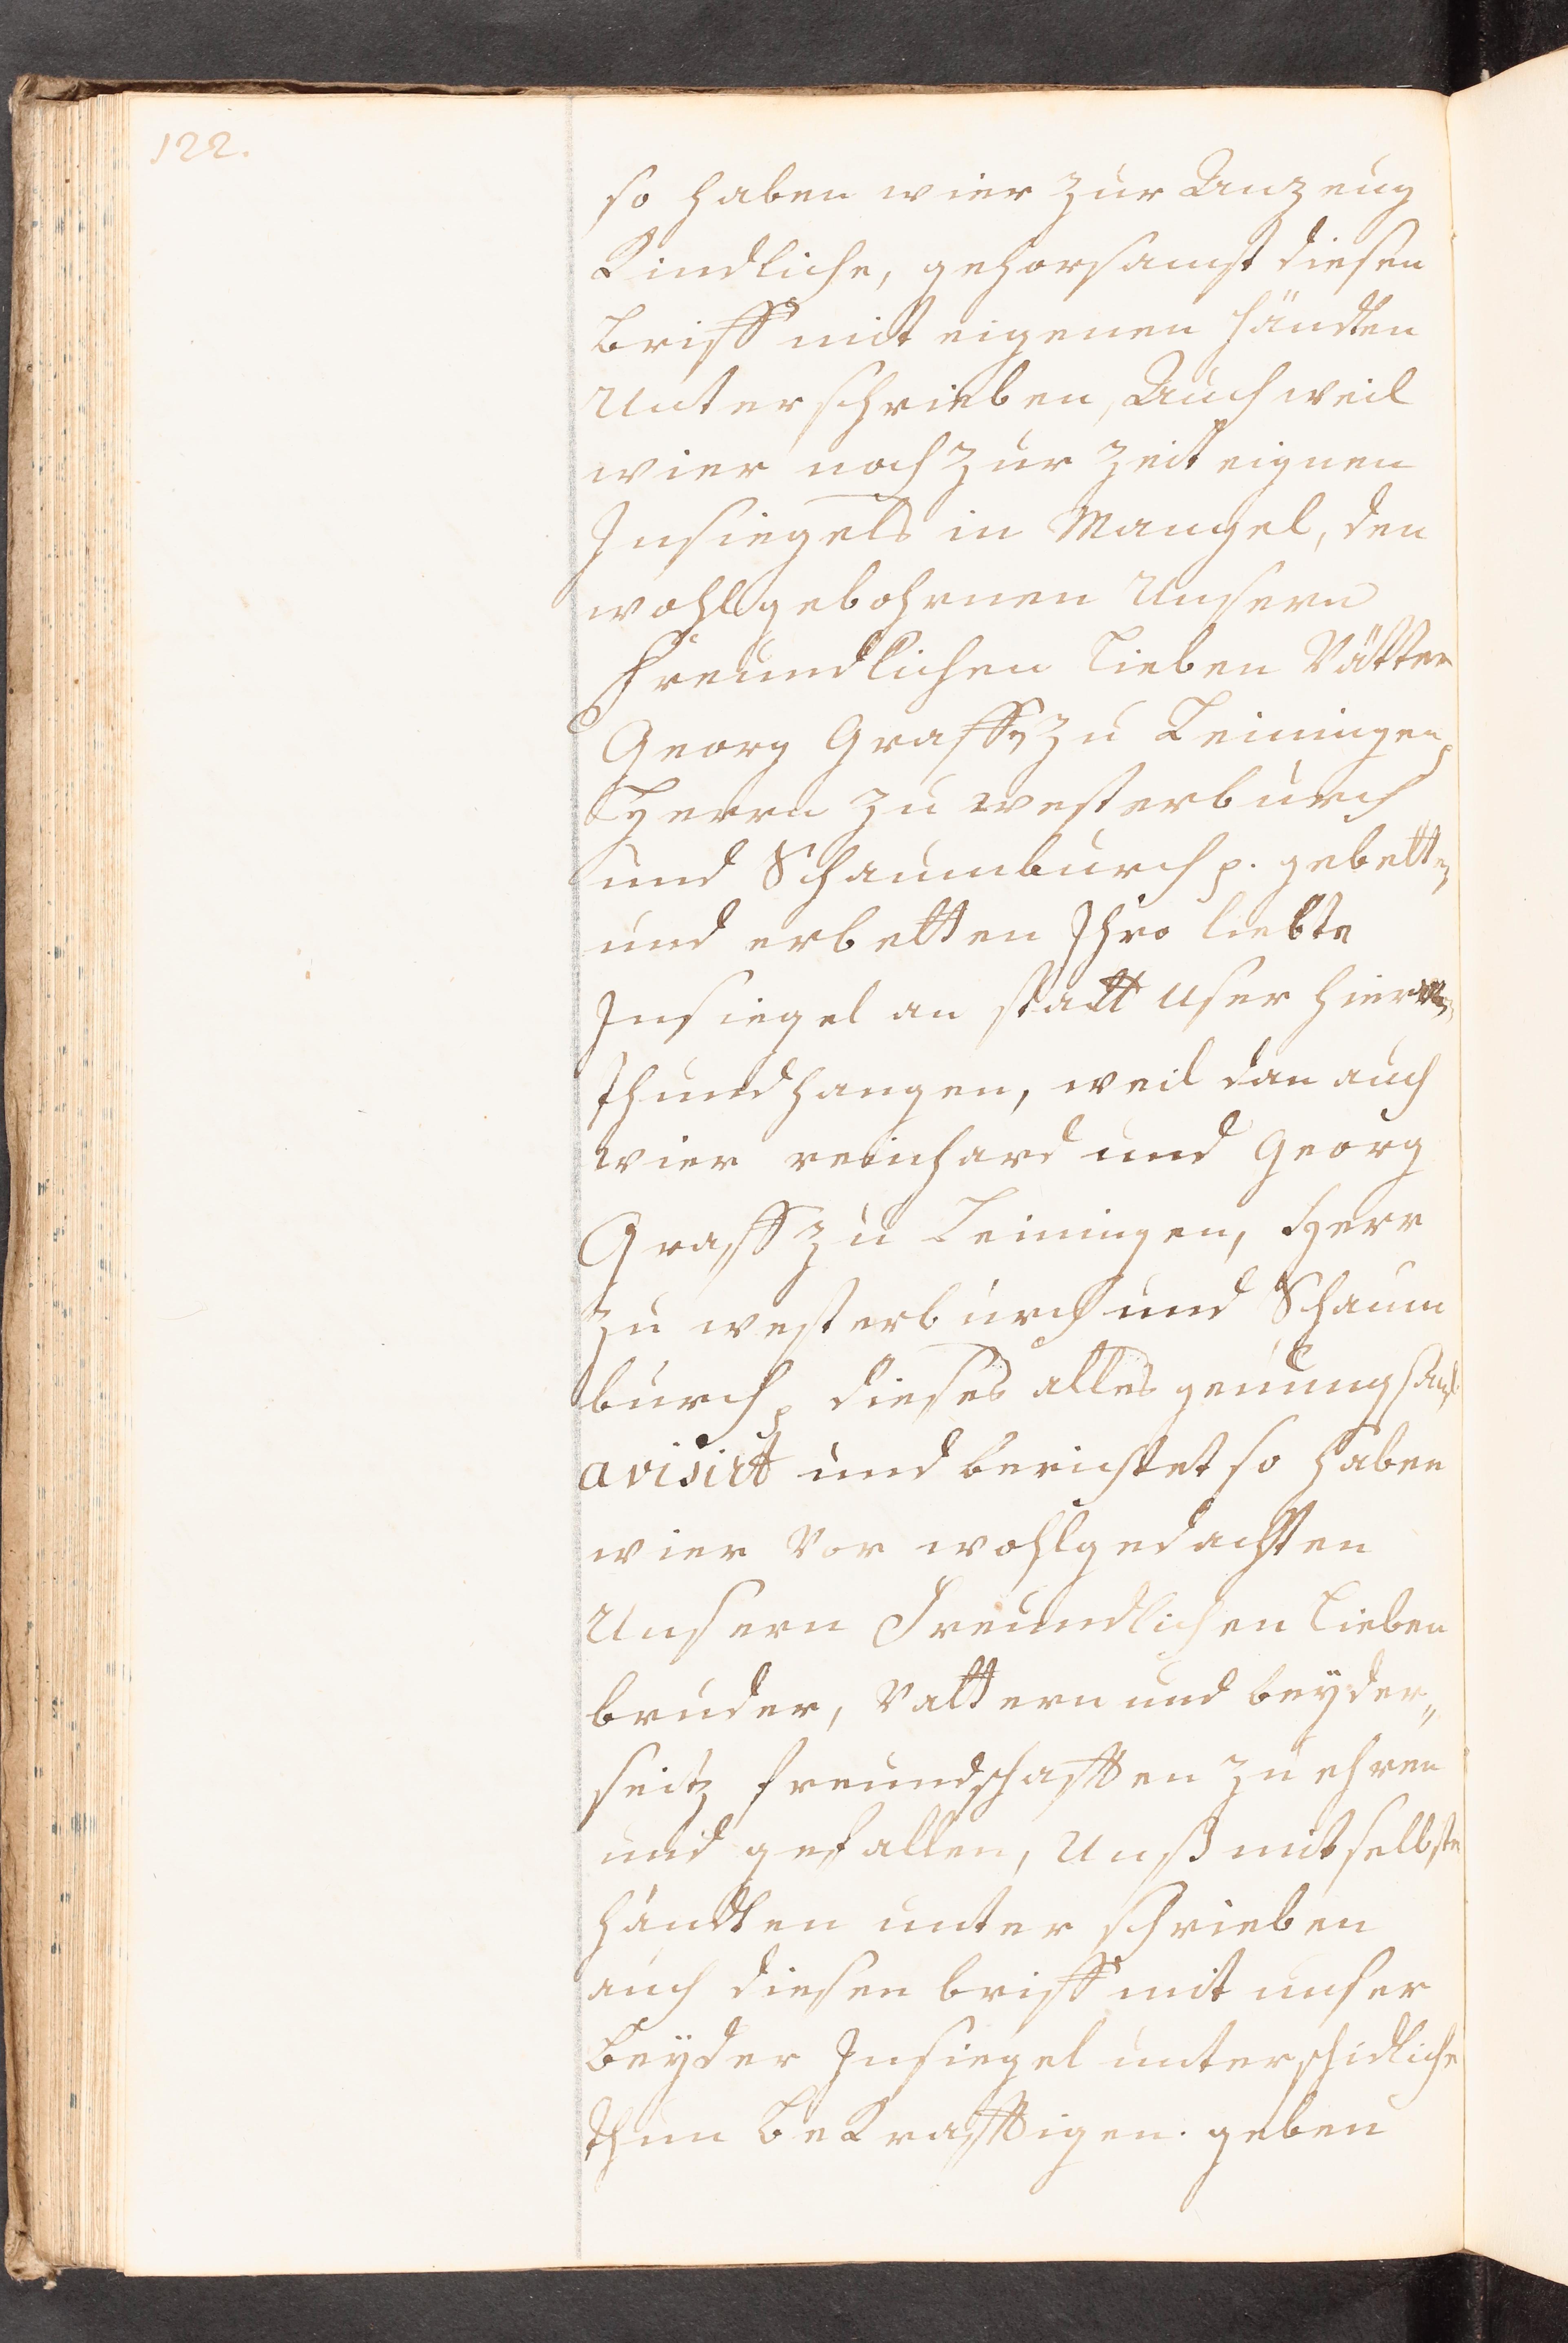 122.
so haben wier zur Anzeug
Kindliche, gehorsamst diesen
Briff mit eigenen händten
Unterschrieben, Auch weil
wier noch zur Zeit eignen
Insiegels in Mangel, den
wohlgebohrnen Unsern
Freundlichen lieben Vätter
Georg Graffen zu Leiningen
Herrn zu westerburch
und Schaumburch p. gebetten
und erbetten Ihro liebte
Insiegel an statt User hieran
thundhangen, weil dan auch
wier reinhard und Georg
Graff zu Leiningen, Herr
zu westerburch und Schaum
burch p dieses alles genungsam
avisirt und berichtet so haben
wier vor wohlgedachten
Unsern Freundlichen lieben
bruder, Vattern und beyder„
seitz freundschafften zu ehren
und gefallen, Unß mit selbste
händten unter schrieben
auch diesen briff mit unser
beyder Insiegel unterschidliche
thun beKrafftigen. geben